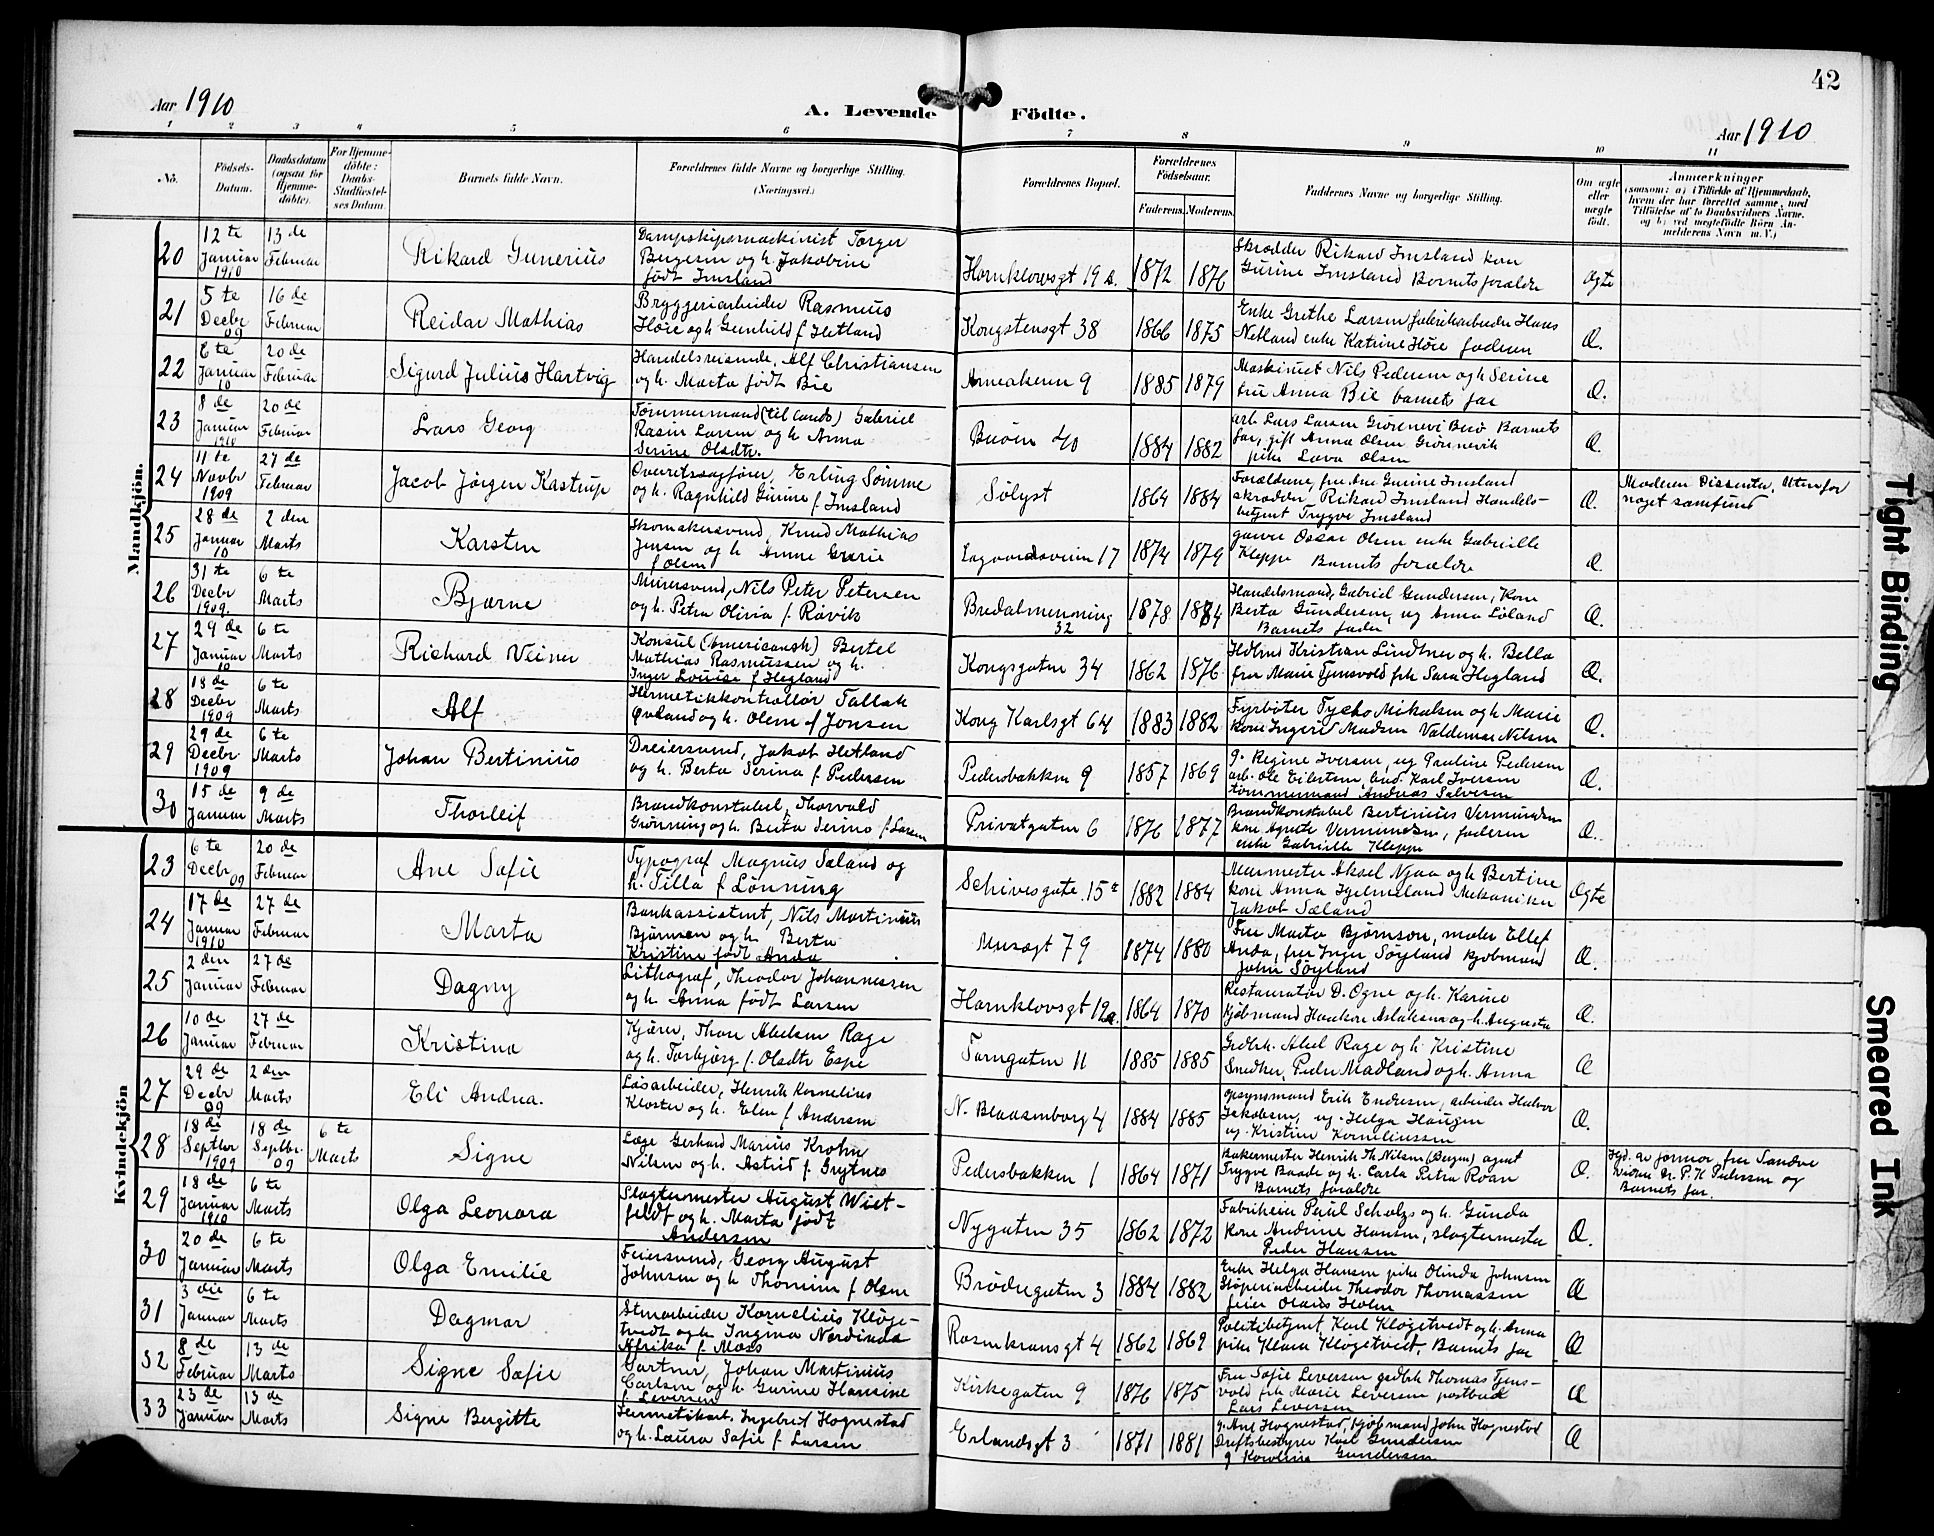 42
Aar 1910
A. Levende Födte.
Aar 1910
1 2 3 4 5 6 7 8 9 10 11
No.
Födsels-
Datum.
Daabsdatum
(ogsaa for
Hjemme-
döbte).
For Hjemme-
döbte:
Daabs-
Stadfæstel-
ses Datum.
Barnets fulde Navn.
Forældrenes fulde Navne og borgerlige Stilling.
(Næringsvei.)
Forældrenes Bopæl.
Forældrenes
Födselsaar.
Faderens. Moderens.
Faddernes Navne og borgerlige Stilling.
Om ægte
eller
uægte
födt.
Anmærkninger
(saasom: a) i Tilfælde af Hjemmedaab,
hvem der har forrettet samme, med
Tilföielse af to Daabsvidners Navne,
og b) ved uægtefödte Börn An-
melderens Navn m. V.)
Mandkjön.
20
12 te
Januar
1910
13 de
Februar
Rikard Gunerius
Dampskipsmaskinist Torger
Bugesen og h. Jakobine
født Imsland
Hornklovsgt 19 a. 1872 1876
Skrædder Rikard Imsland kone
Gurine Imsland Barnets forældre
ægte
21
5 te
Decbr
09
16 de
Februar
Reidar Mathias
Bryggeriarbeider Rasmus
Høie og h. Gunhild f. Hetland
Kongstensgt 38 1866 1875
Enke Grethe Larsen fabrikarbeider Hans
Netland enke Katrine Høie faderen
Æ.
22
6 te
Januar
10
20 de
Februar
Sigurd Julius Hartvig
Handelsreisende, Alf Christiansen
og h. Marta født Bie
Arneakeren 9 1885 1879
Maskinist Nils Pedersen og h Serine
fru Anna Bie barnets far
Æ.
23
8 de
Januar
1910
20 de
Februar
Lars Georg
Tømmermand (til lands) Gabriel
Rasin Larsen og h. Anna
Serine Olsdtr.
Buøen 40 1884 1882
arb. Lars Larsen Grønnevi Buø Barnets
far, gift Anna Olsen Grønnevik
pike Lava Olsen
Æ.
24
11 te
Novbr
1909
27 de
Februar
Jacob Jørgen Kastrup
Overretssagfører, Erling Sømme
og h. Ragnhild Gurine f. Imsland
Sølyst 1864 1884
Forældrene, fru Ane Gurine Imsland
skræder Rikard Imsland Handels-
betjent Trygve Imsland
Æ.
Moderen Dissenter. Utenfor
noget samfund
25
28 de
Januar
10
2 den
Marts
Karsten
Skomakersvend, Knud Mathias
Jensen og h. Anne Gurie
f Olsen
Lagaardsveien 17 1874 1879
garver Oscar Olsen enke Gabrielle
Kleppe Barnets forældre
Æ.
26
31 te
Decbr
1909.
6 te
Marts
Bjarne
Murersvend, Nils Peter Petersen
og h. Petra Olivia f. Røvik
Bredalmenning
32 1878 1884
Handelsmand, Gabriel Gundersen, Kone
Berta Gundersen, ug Anna Løland
Barnets fader
Æ.
27
29 de
Januar
10
6 te
Marts
Richard Veiner
Konsul (Americansk) Bertel
Mathias Rasmussen og h.
Inger Louise f Hegland
Kongsgaten 34 1862 1876
Kristian Lindtner og h. Bella
fru Marie Tjensvold frk Sara Hegland
Æ.
28
18 de
Decbr
1909
6 te
Marts
Alf
Hermetikkontrollør Tallak
Øvland og h. Olene f Jonsen
Kong Karlsgt 64 1883 1882
Fyrbøter Tycho Mikalsen og h Marie
kone Ingeri Madsen Valdemar Nilsen
Æ.
29
29 de
Decbr
1909
6 te
Marts
Johan Bertinius
Dreiersvend, Jakob Hetland
og h. Berta Serina f. Pedersen
Pedersbakken 9 1857 1869
g. Regine Iversen, ug Pauline Pedersen
arb. Ole Eilertsen bud. Karl Iversen
tømmermand Andreas Salvesen
Æ.
30
15 de
Januar
9 de
Marts
Thorleif
Brandkonstabel, Thorvald
Grønning og h. Berta Serine f. Larsen
Privatgaten 6 1876 1877
Brandkonstabel Bertinius Vermundsen
kone Agnete Vermundsen, faderen
enke Gabrielle Kleppe
Æ.
Kvindekjön
23
6 te
Decbr
09
20 de
Februar
Ane Sofie
Typograf Magnus Sæland og
h. Tilla f Lønning
Schivesgate 15 1882 1884
Murmester Aksel Njaa og h Bertine
kone Anna Hjelmeland Mekaniker
Jakob Sæland
Ægte
24
17 de
Januar
1910
27 de
Februar
Marta
Bankassistent, Nils Martinius
Bjørnsen og h. Berta
Kristine født Anda
Musægt 79 1874 1880
Fru Marta Bjørnson, maler Ellef
Anda, fru Inger Søyland kjøbmand
John Søyland
Æ.
25
2 den
Januar
27 de
Februar
Dagny
Lithograf, Theodor Johannessen
og h Anna født Larsen
Hornklovsgt 12a. 1864 1870
Restauratør D. Ogne og h. Karine
Kjøbmand Haakon Aslaksen og h. Augusta
Æ.
26
10 de
Januar
27 de
Februar
Kristina
Kjører, Thore Abelsen Rage
og h. Torbjørg f. Olsdtr Espe
Torngaten 11 1885 1885
Grdbr. Abel Rage og h. Kristine
Snedker, Peder Madland og h. Anna
Æ
27
29 de
Decbr
09
2 den
Marts
Eli Andrea.
Løsarbeider, Henrik Kornelius
Kloster og h. Elen f Andersen
N. Blaasenborg 4 1884 1885
Opsynsmand Erik Endresen, arbeider Halvor
Jakobsen, ug. Helga Haugen
ug. Kristine Korneliussen
Æ.
28
18 de
Septbr
1909
18 de
Septbr.
09
6 te
Marts
Signe
Læge Gerhard Marius Krohn
Nilsen og h. Astrid f. Grytnes
Pedersbakken 1 1864 1871
Bakermester Henrik Th. Nilsen (Bergen) agent
Trygve Baade og h. Carla Petra Roan
Barnets forældre
Æ.
Hjd. av jormor fru Sandve
vidner Dr. P. K. Pedersen og
Barnets far.
29
18 de
Januar
1910
6 te
Marts
Olga Leonora
Slagtermester August Wiet-
feldt og h. Marta født
Andersen
Nygaten 35 1862 1872
Fabrikeier Paul Scholzs og h. Gunda
kone Andrine Hansen, slagtermester
Peder Hansen
Æ.
30
20 de
Januar
6 te
Marts
Olga Emilie
Feiersvend, Georg August
Johnsen og h Thomine f Olsen
Brødregaten 3 1884 1882
Enke Helga Hansen pike Olinda Johnsen
Støperiarbeider Theodor Thomassen
feier Olaus Holm
Æ
31
3 die
Januar
6 te
Marts
Dagmar
Stenarbeider Kornelius Kløge-
tvedt og h. Ingina Nordinda
Afrika f. Moss
Rosenkransgt 4 1862 1869
Politibetjent Karl Kløgetvedt og h. Anna
pike Klara Kløgetveit, Barnets far
Æ
32
8 de
Februar
13 de
Marts
Signe Sofie
Gartner, Johan Martinius
Carlsen og h. Gurine Hansine
f. Leversen
Kirkegaten 9 1876 1875
Fru Sofie Leversen grdbr Thomas Tjens-
vold frk Marie Leversen postbud
Lars Leversen
Æ
33
23 de
Januar
13 de
Marts
Signe Bergitte
Hermetikarb. Ingebret Hognestad
og h. Laura Sofie f. Larsen
Erlandsgt 3 1871 1881
g. Ane Hognestad, kjøbmand John Hognestad
Driftsbestyrer Karl Gundersen
g Karolina Gundersen
Æ
Tight Binding
Smeared Ink